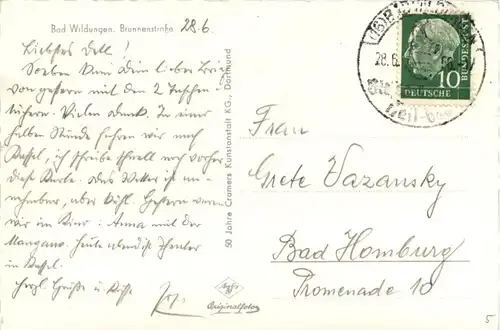 Bad Wildungen. Brunnenstraße 28.6.
Liebstes Dell!
Soeben kam dein lieber Brief
von gestern mit den 2 Taschen-
tüchern. Vielen Dank. In einer
halben Stunde fahren wir nach
Kassel, ich schreibe schnell noch vorher
diese Karte. Das Wetter ist an-
nehmbar, aber kühl. Gestern waren
wir im Kino: Anna mit der
Mangano. Heute abend ist Theater
in Kassel.
Herzl. Grüße u. Küsse
50 Jahre Cramers Kunstanstalt KG., Dortmund
Agfa
Originalfoto
28.6.
10
DEUTSCHE
BUNDESPOST
Frau
Grete Vazansky
Bad Homburg
Promenade 10
5